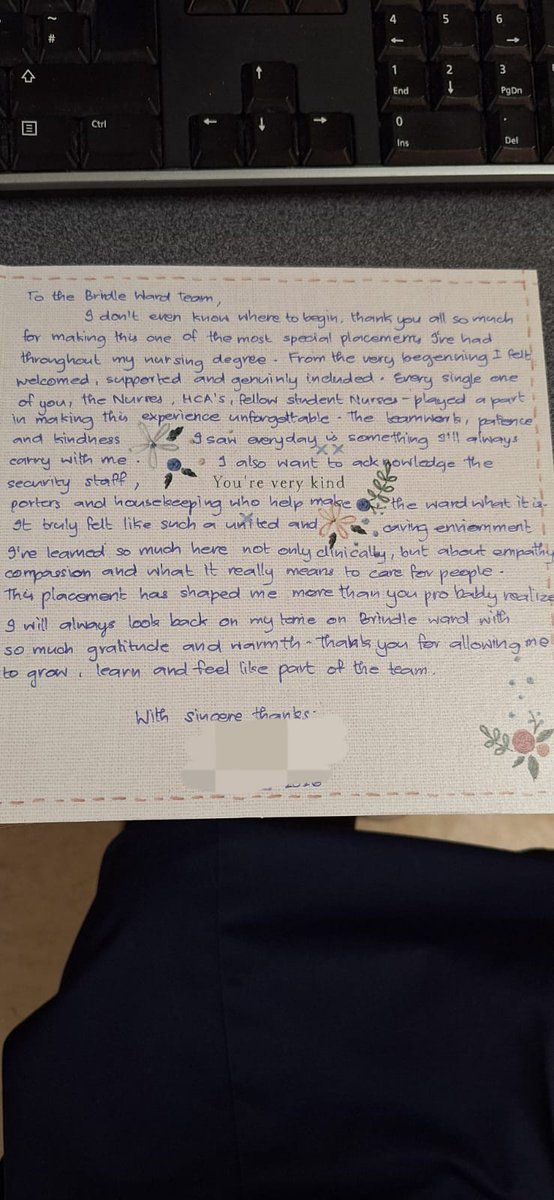 ~
#
4
←
5
6
→
⇧
↑
1
End
2
↓
3
PgDn
Ctrl
←
↓
→
0
Ins
.
Del
To the Brindle Ward Team,
I don't even know where to begin, thank you all so much
for making this one of the most special placements I've had
throughout my nursing degree. From the very begenning I felt
welcomed, supported and genuinly included. Every single one
of you, the Nurses, HCA's, fellow student Nurses - played a part
in making this experience unforgettable. The teamwork, patience
and kindness I saw everyday is something I'll always
carry with me. I also want to acknowledge the
security staff,
You're very kind
porters and housekeeping who help make the ward what it is.
It truly felt like such a united and caring enviroment
I've learned so much here not only clinically, but about empathy
compassion and what it really means to care for people.
This placement has shaped me more than you probably realize
I will always look back on my time on Brindle ward with
so much gratitude and warmth - thank you for allowing me
to grow, learn and feel like part of the team.
With sincere thanks.